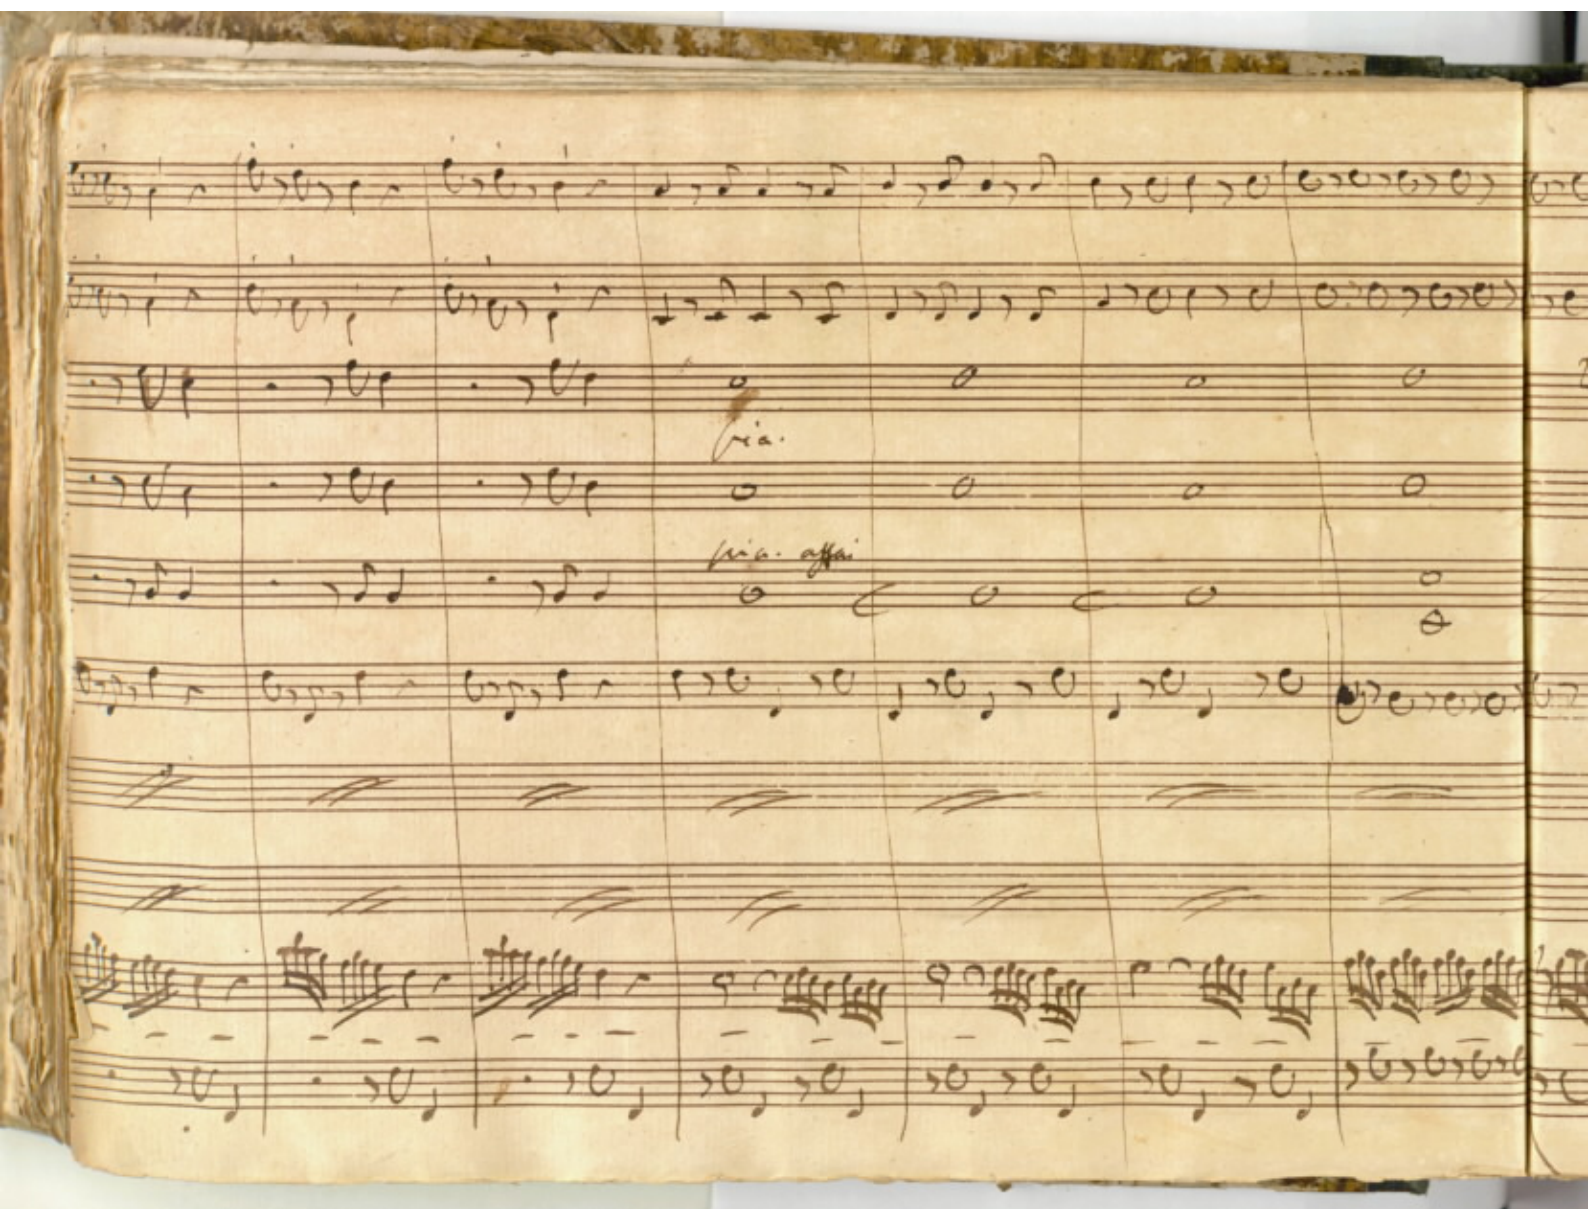 pia.
pia. assai